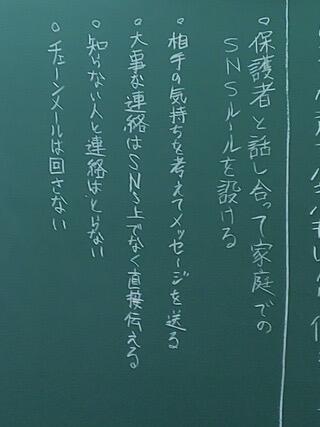 ○保護者と話し合って家庭での
SNSルールを設ける
○相手の気持ちを考えてメッセージを送る
○大事な連絡はSNS上でなく直接伝える
○知らない人と連絡はとらない
○チェーンメールは回さない